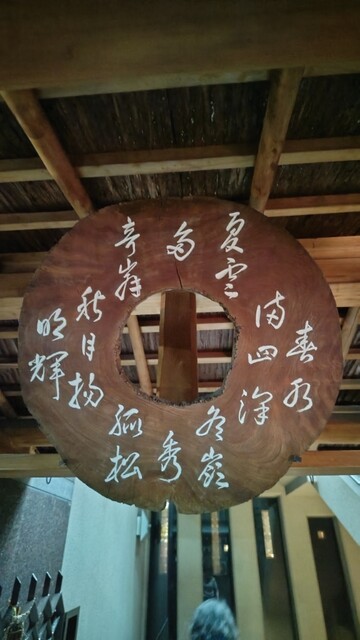 春水
満四澤
夏雲
多
奇峰
秋月揚
明輝
冬嶺
秀
孤松